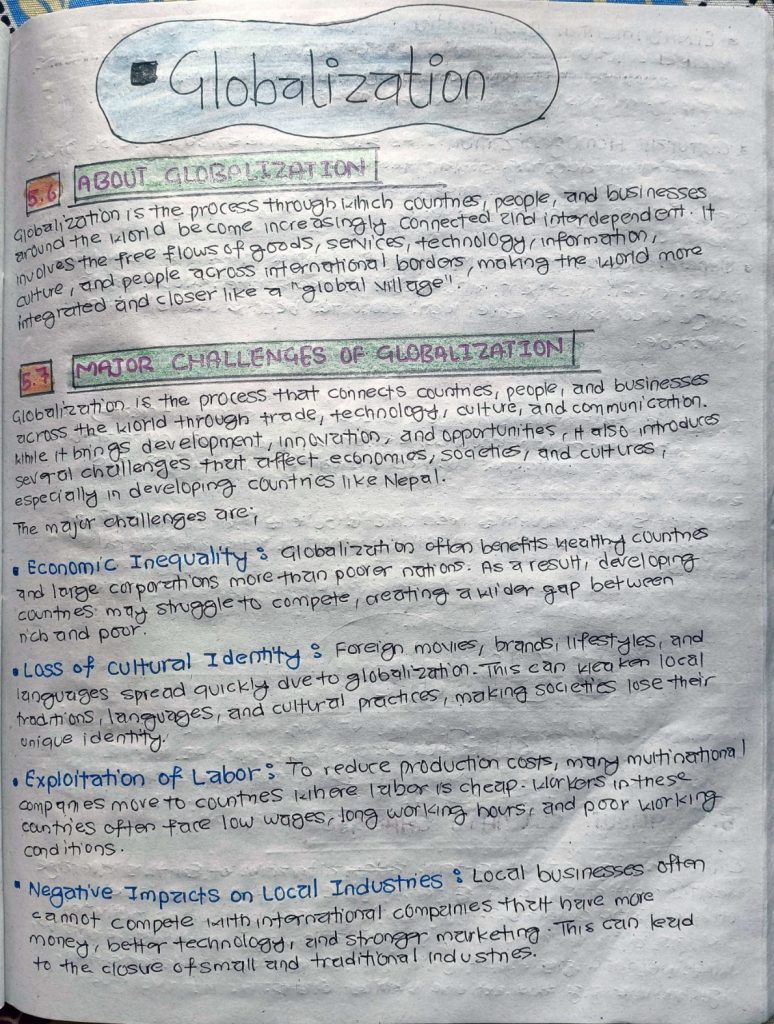 ▪ Globalization
5.6 ABOUT GLOBALIZATION
Globalization is the process through which countries, people, and businesses
around the world become increasingly connected and interdependent. It
involves the free flows of goods, services, technology, information,
culture, and people across international borders, making the world more
integrated and closer like a "global village".
5.7 MAJOR CHALLENGES OF GLOBALIZATION
Globalization is the process that connects countries, people, and businesses
across the world through trade, technology, culture, and communication.
While it brings development, innovation, and opportunities, it also introduces
several challenges that affect economies, societies, and cultures,
especially in developing countries like Nepal.
The major challenges are;
▪ Economic Inequality : Globalization often benefits wealthy countries
and large corporations more than poorer nations. As a result, developing
countries may struggle to compete, creating a wider gap between
rich and poor.
• Loss of cultural Identity : Foreign movies, brands, lifestyles, and
languages spread quickly due to globalization. This can weaken local
traditions, languages, and cultural practices, making societies lose their
unique identity.
• Exploitation of Labor : To reduce production costs, many multinational
companies move to countries where labor is cheap. Workers in these
countries often face low wages, long working hours, and poor working
conditions.
▪ Negative Impacts on Local Industries : Local businesses often
cannot compete with international companies that have more
money, better technology, and stronger marketing. This can lead
to the closure of small and traditional industries.